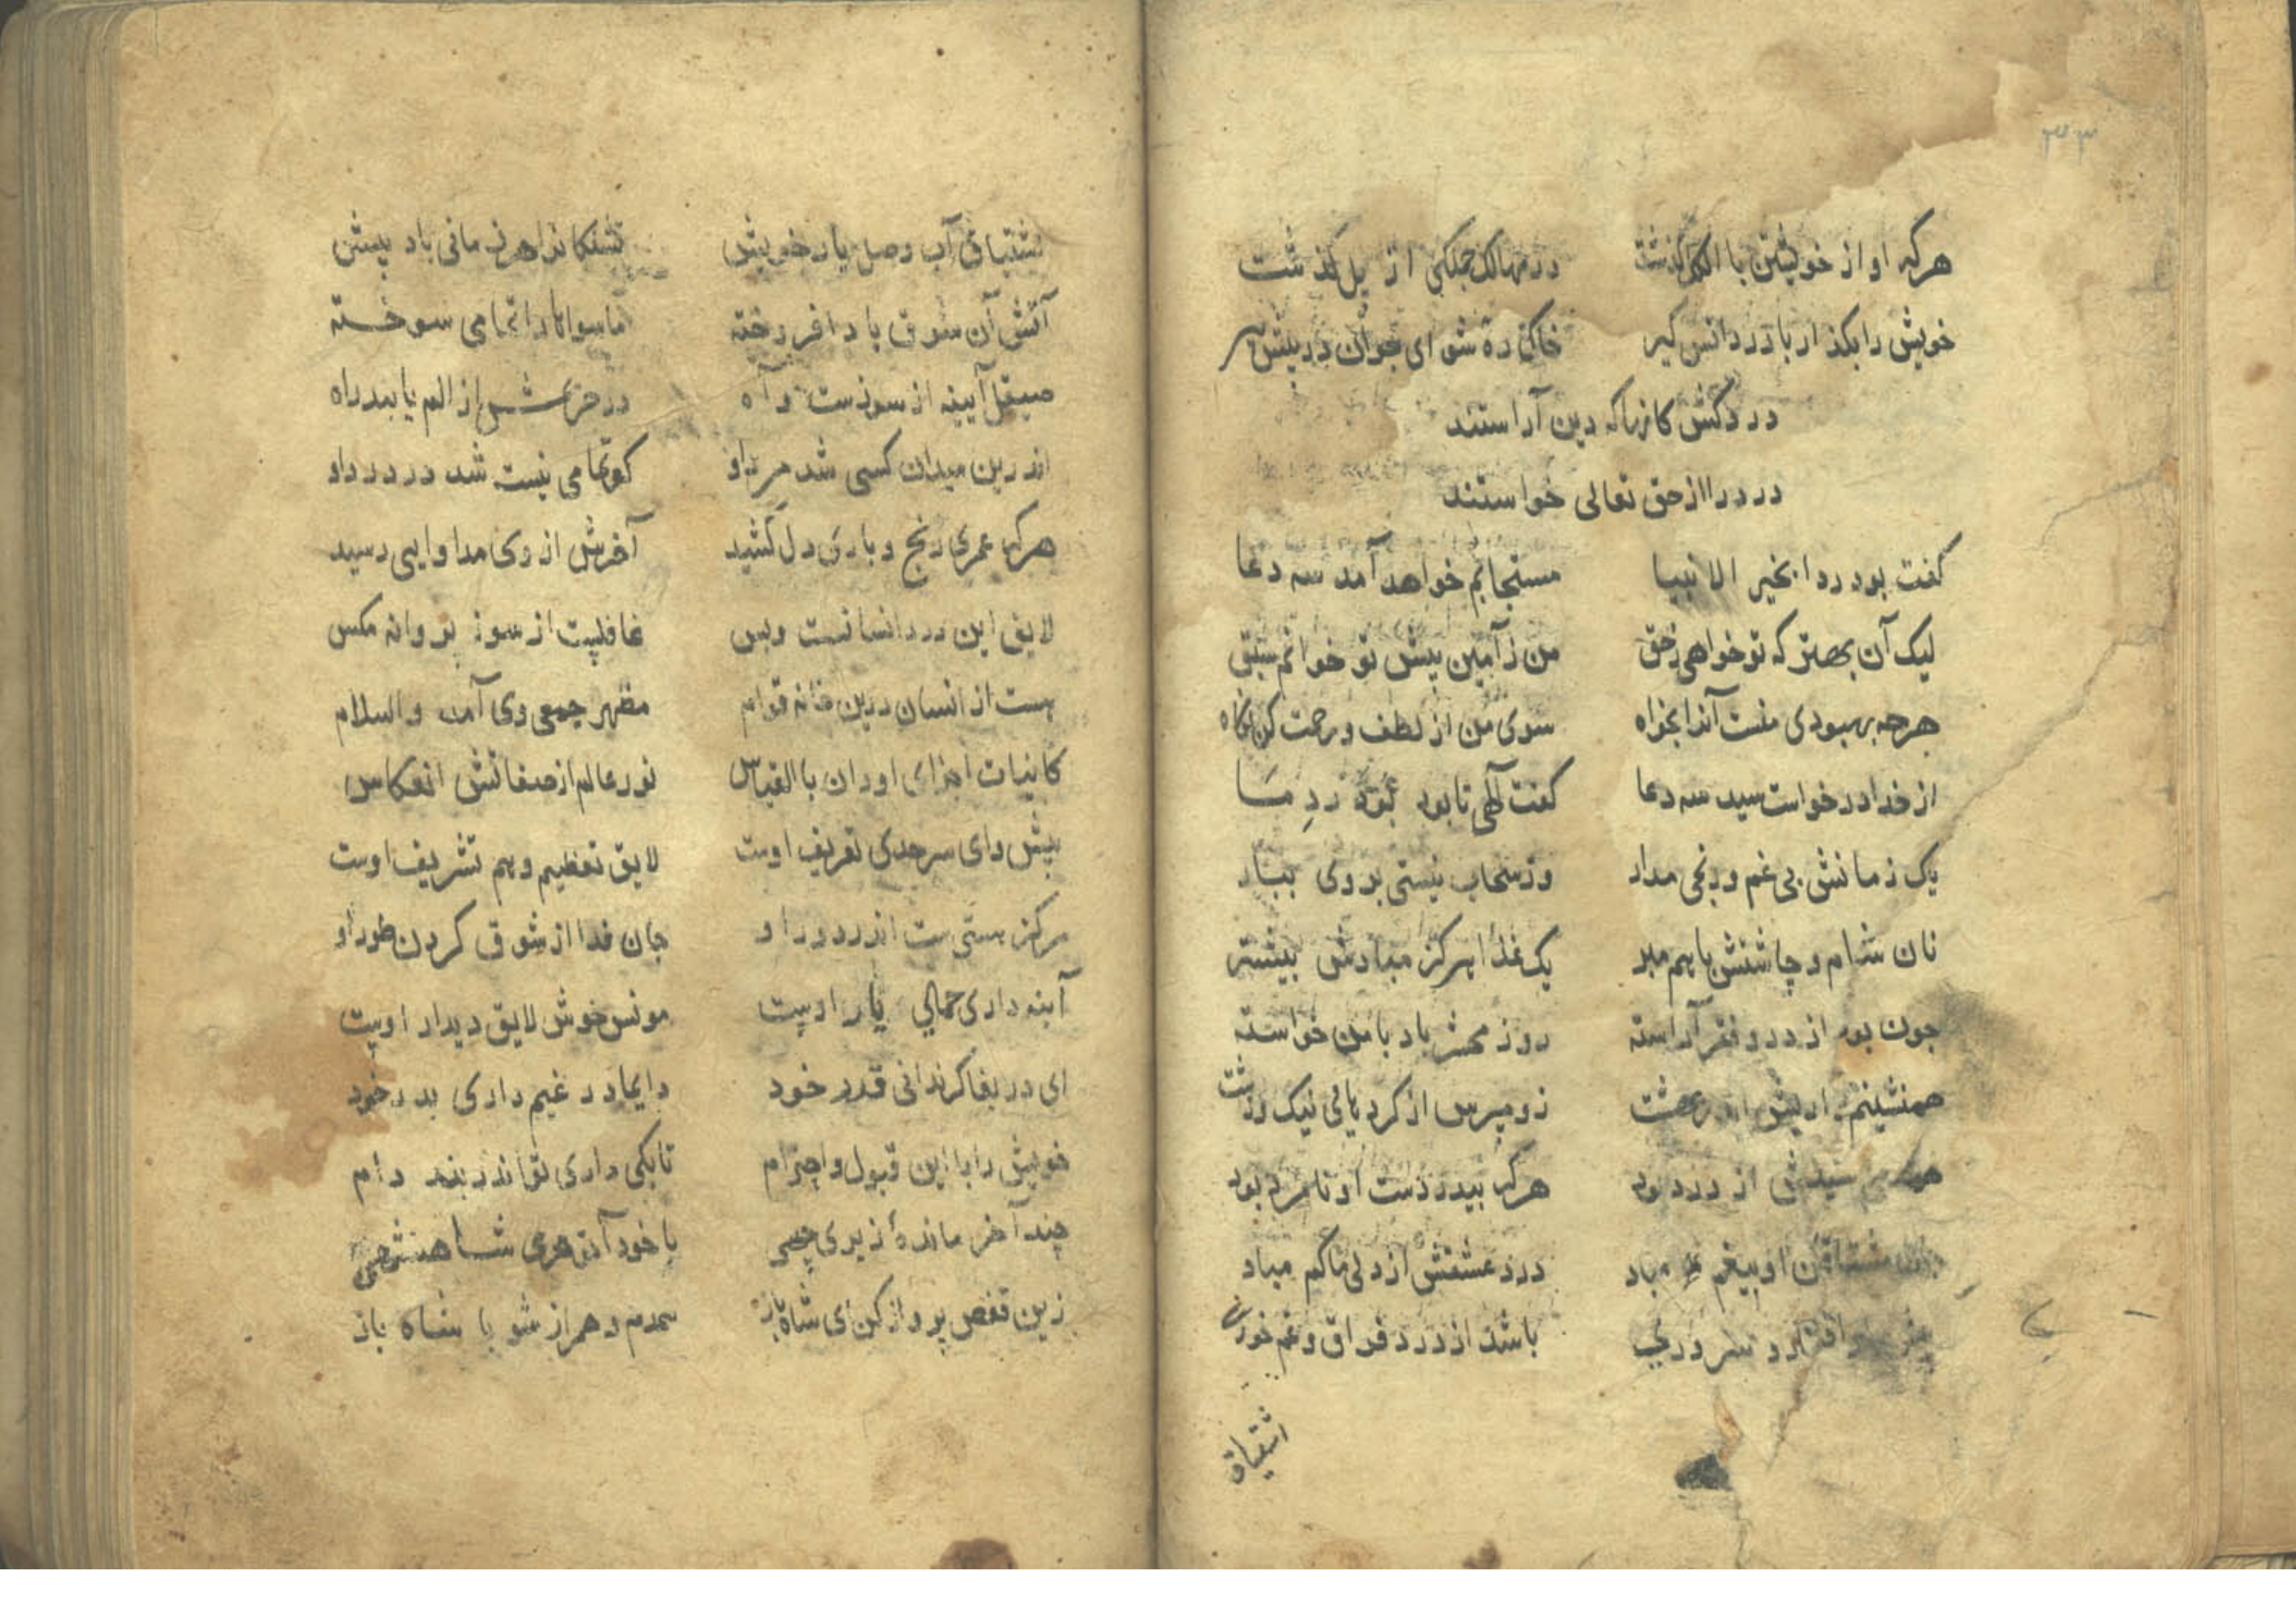 ۳۳
هرکه او از خویشتن با الکل گذشت در مهالک جملکی از پل گذشت
خویش را بکذار با درد انس کیر خاک ره شو ای جوان در پیش پیر
درد کش کانها که دین آراستند
درد را از حق تعالی خواستند
گفت بودردا بخیر الانبیا مستجابم خواهد آمد سه دعا
لیک آن بهتر که تو خواهی زحق من ز آمین پیش تو خوانم سبق
هرچه بهبودی منست آنرا بخواه سوی من از لطف و رحمت کن نگاه
از خدا درخواست سید سه دعا گفت آلهی تا بود
یک زمانش بی غم و رنجی مدار وز سحاب نیستی بر وی ببار
نان شام و چاشتش باهم مبر یک غذا هرکز مبادش بیشتر
چون بود از درد و فقر آراسته روز محشر باد با من خواسته
همنشینم نیک و زشت
از درد بود هرکه بیدردست او نامرد بود
مشتاقان او بیغم مباد درد عشقش از دل ما کم مباد
سروری باشد از درد فراق و غم خوری
اشتیاق
اشتیاق آب وصل یار خویش تشنکانرا هر زمانی باد پیش
آتش آن شوق باد افروخته ماسوانا را تمامی سوخته
صیقل آیینه از سوزست و آه در از الم یابند راه
اندرین میدان کسی شد مرد او کو تمامی نیست شد در درد او
هرکه عمری رنج و بار دل کشید آخرش از وی مداوایی رسید
لایق این درد انسانست وبس غافلست از سوز پروانه مکس
هست از انسان درین خانه قوام مظهر جمعی وی آمد والسلام
کاینات اجزای او دان بالقیاس نور عالم از صفاتش انعکاس
پیش و ای سرحدی تعریف اوست لایق تعظیم وهم تشریف اوست
مرکز هستی ست اندر دور او جان فدا از شوق کردن طور او
آینه داری جمالی یار اوست مونس خوش لایق دیدار اوست
ای دریغا کر ندانی قدر خود دایما در غیم داری بدر خود
خویش را با این قبول واحترام تابکی داری تو اندر بند دام
چند آخر مانده از یری چهی با خود آ شاهنشهی
زین قفص پرواز کن ای شاه باز همدم و همراز شو با شاه باز